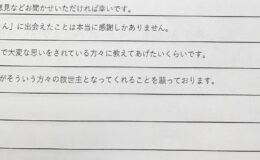 意見などお聞かせいただければ幸いです。
ん」に出会えたことは本当に感謝しかありません。
で大変な思いをされている方々に教えてあげたいくらいです。
がそういう方々の救世主となってくれることを願っております。